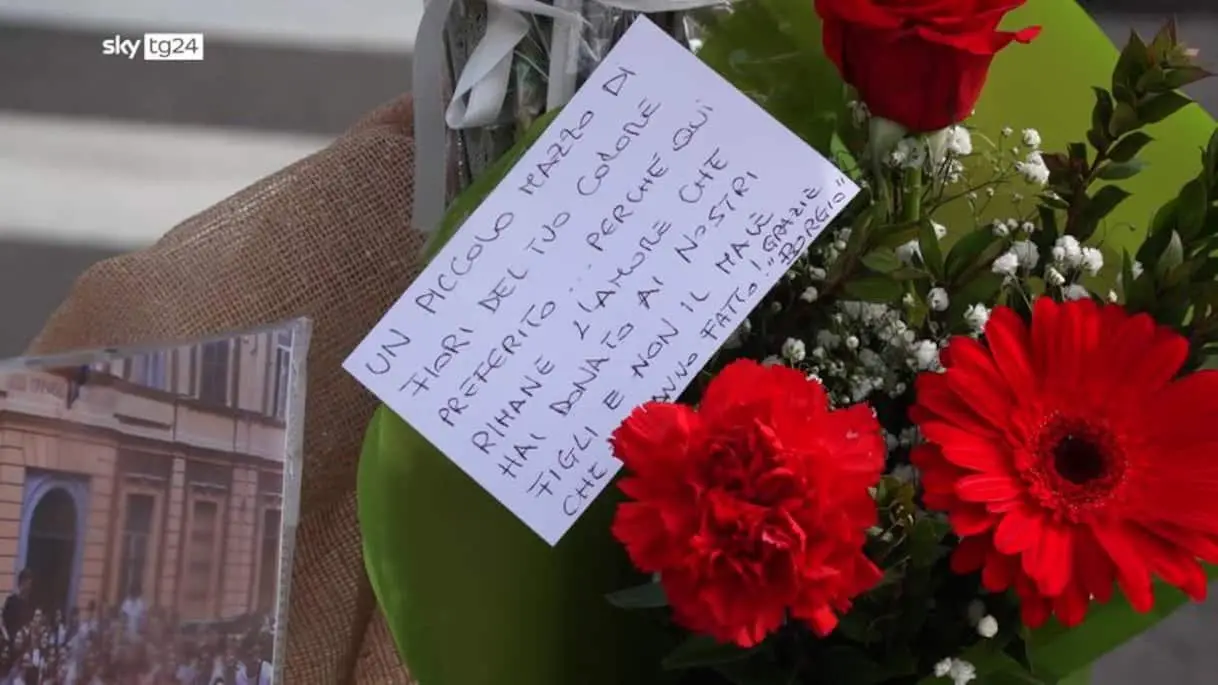 sky tg24
UN PICCOLO MAZZO DI
FIORI DEL TUO COLORE
PREFERITO ... PERCHÉ QUI
RIMANE L'AMORE CHE
HAI DONATO AI NOSTRI
FIGLI E NON IL MALE
CHE ANNO FATTO! GRAZIE
"BORGIO"